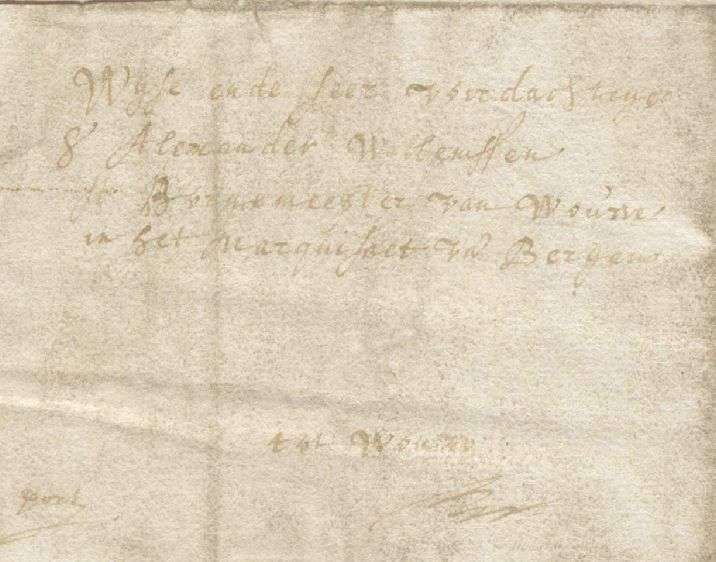 Wijse ende seer voordachtige
Sr Alexander Willemssen
Borgemeester van Wouwe
in het Marquisaet van Bergen
tot Wouw
port